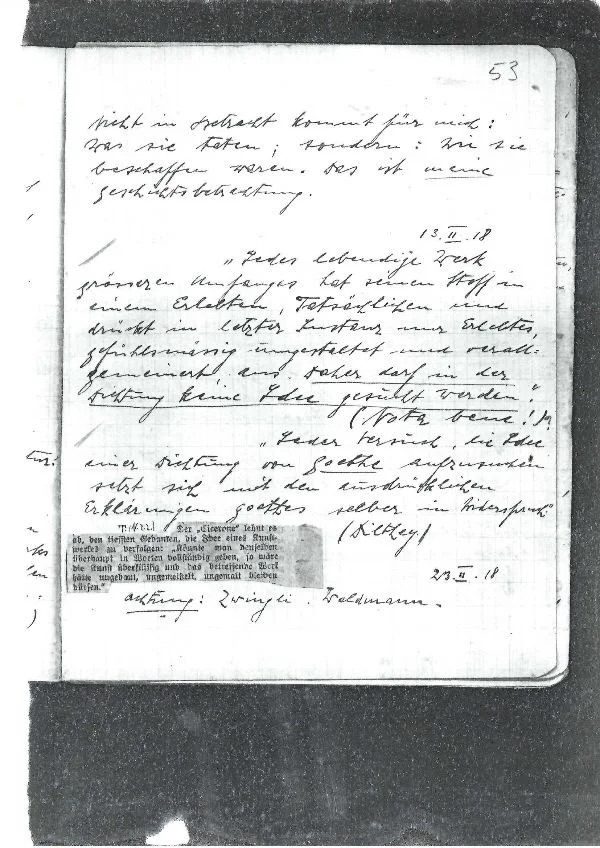 53
nicht in Betracht kommt für mich:
was sie taten; sondern: wie sie
beschaffen waren. Das ist meine
Geschichtsbetrachtung.
13. II. 18
„Jedes lebendige Werk
grösseren Umfanges hat seinen Stoff in
einem Erlebten, Tatsächlichen und
drückt in letzter Instanz nur Erlebtes,
gefühlsmässig umgestaltet und verall-
gemeinert, aus. Daher darf in der
Dichtung keine Idee gesucht werden."
(Nota bene!)
„Jeder Versuch, die Idee
einer Dichtung von Goethe aufzusuchen
setzt sich mit den ausdrücklichen
Erklärungen Goethes selber in Widerspruch"
(Dilthey)
Der „Cicerone" lehnt es
ab, den tiefsten Gedanken, die Idee eines Kunst-
werkes zu verfolgen: „Könnte man denselben
überhaupt in Worten vollständig geben, so wäre
die Kunst überflüssig und das betreffende Werk
hätte ungebaut, ungemeißelt, ungemalt bleiben
dürfen."
23. II. 18
Achtung: Zwingli. Waldmann.